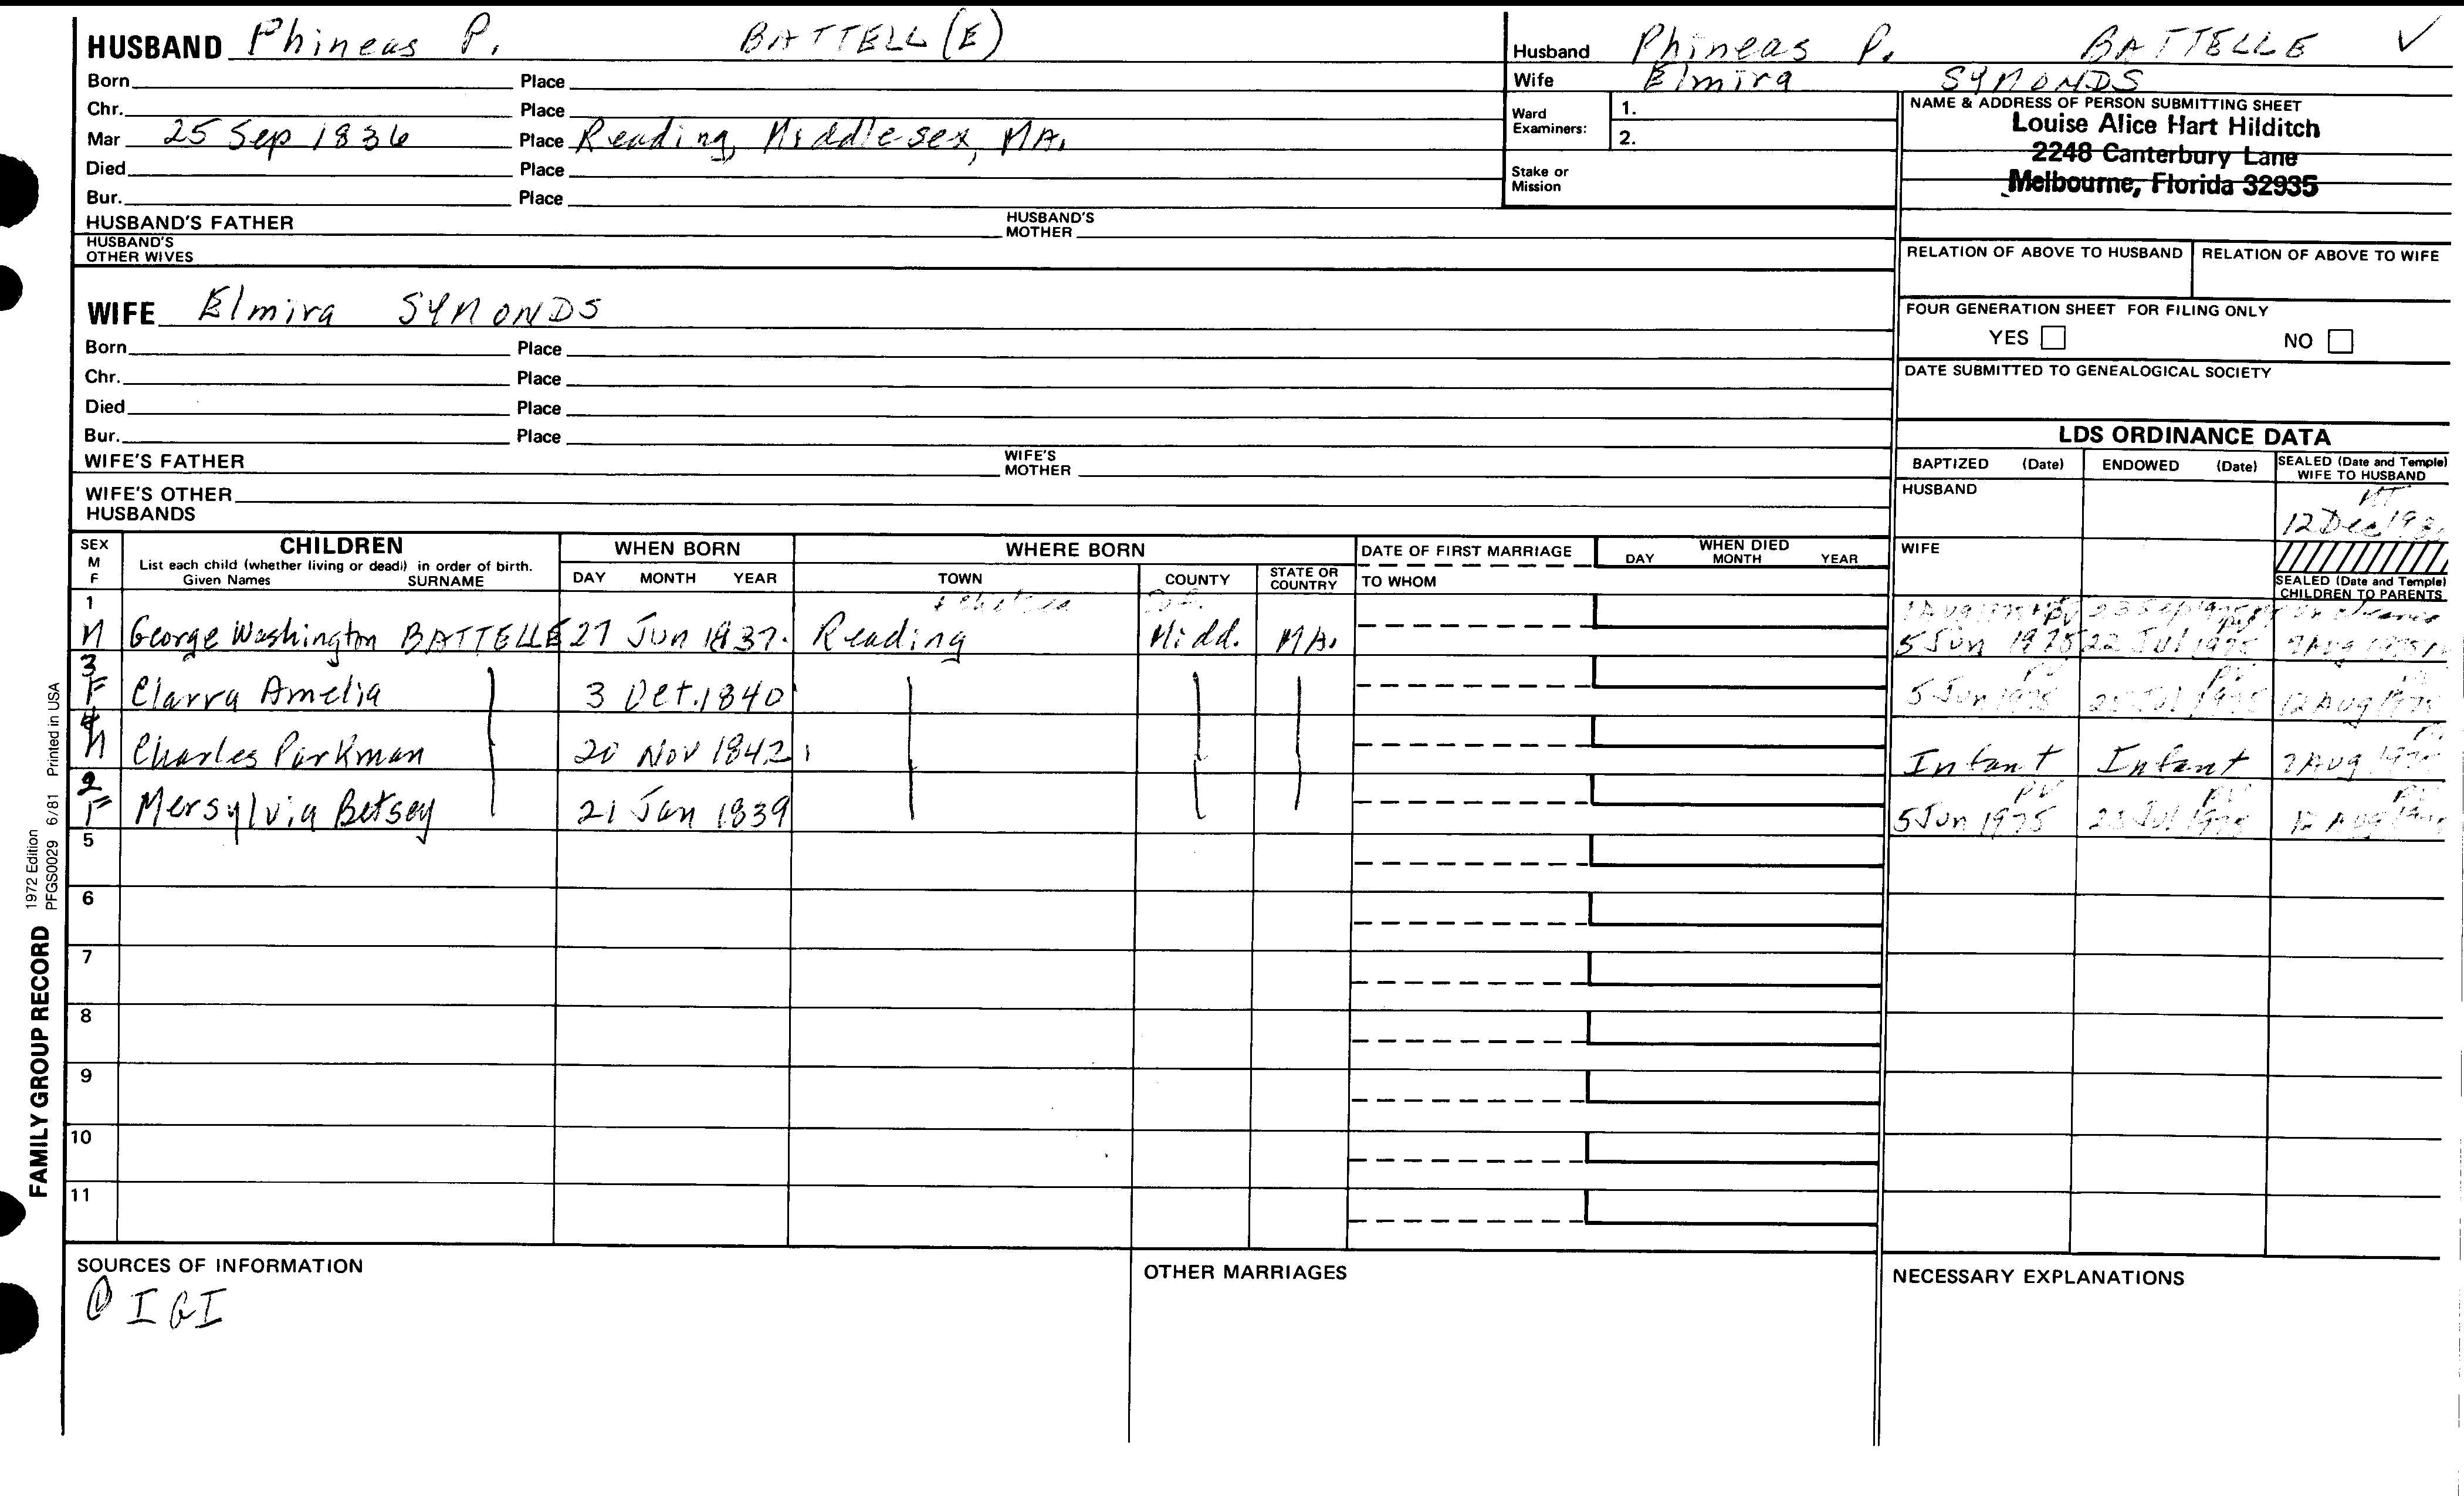 HUSBAND Phineas P. BATTELL (E)
Born Place
Chr. Place
Mar 25 Sep 1836 Place Reading, Middlesex, MA.
Died Place
Bur. Place
HUSBAND'S FATHER HUSBAND'S MOTHER
HUSBAND'S OTHER WIVES
Husband Phineas P. BATTELLE ✓
Wife Elmira SYMONDS
Ward Examiners: 1.
2.
Stake or Mission
NAME & ADDRESS OF PERSON SUBMITTING SHEET
Louise Alice Hart Hilditch
2248 Canterbury Lane
Melbourne, Florida 32935
RELATION OF ABOVE TO HUSBAND RELATION OF ABOVE TO WIFE
FOUR GENERATION SHEET FOR FILING ONLY
YES NO
DATE SUBMITTED TO GENEALOGICAL SOCIETY
WIFE Elmira SYMONDS
Born Place
Chr. Place
Died Place
Bur. Place
WIFE'S FATHER WIFE'S MOTHER
WIFE'S OTHER HUSBANDS
LDS ORDINANCE DATA
BAPTIZED (Date) ENDOWED (Date) SEALED (Date and Temple) WIFE TO HUSBAND
HUSBAND
12 Dec
WIFE
SEALED (Date and Temple) CHILDREN TO PARENTS
SEX M F
CHILDREN
List each child (whether living or dead) in order of birth.
Given Names SURNAME
WHEN BORN
DAY MONTH YEAR
WHERE BORN
TOWN COUNTY STATE OR COUNTRY
DATE OF FIRST MARRIAGE
TO WHOM
WHEN DIED
DAY MONTH YEAR
1
M George Washington BATTELLE 27 Jun 1837. Reading Midd. MA. 5 Jun 1975 22 Jul 1975
3
F Clarra Amelia 3 Oct. 1840 5 Jun 1975
4
M Charles Parkman 20 Nov 1842 Infant Infant 7 Aug
2
F Mersylvia Betsey 21 Jan 1839 5 Jun 1975 PV
5
6
7
8
9
10
11
SOURCES OF INFORMATION
① IGI
OTHER MARRIAGES
NECESSARY EXPLANATIONS
FAMILY GROUP RECORD 1972 Edition
PFGS0029 6/81 Printed in USA